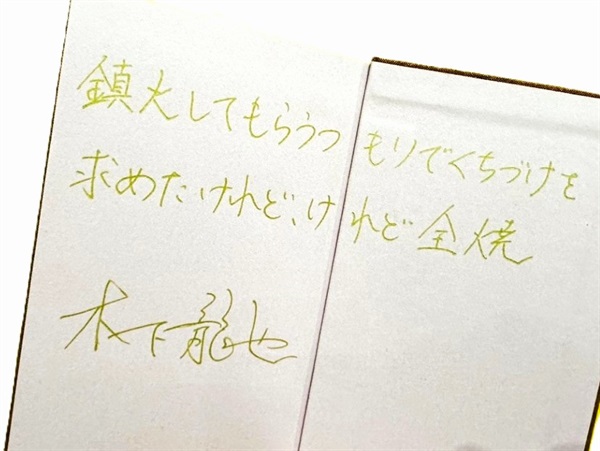 鎮火してもらうつもりでくちづけを
求めたけれど、けれど全焼
木下龍也